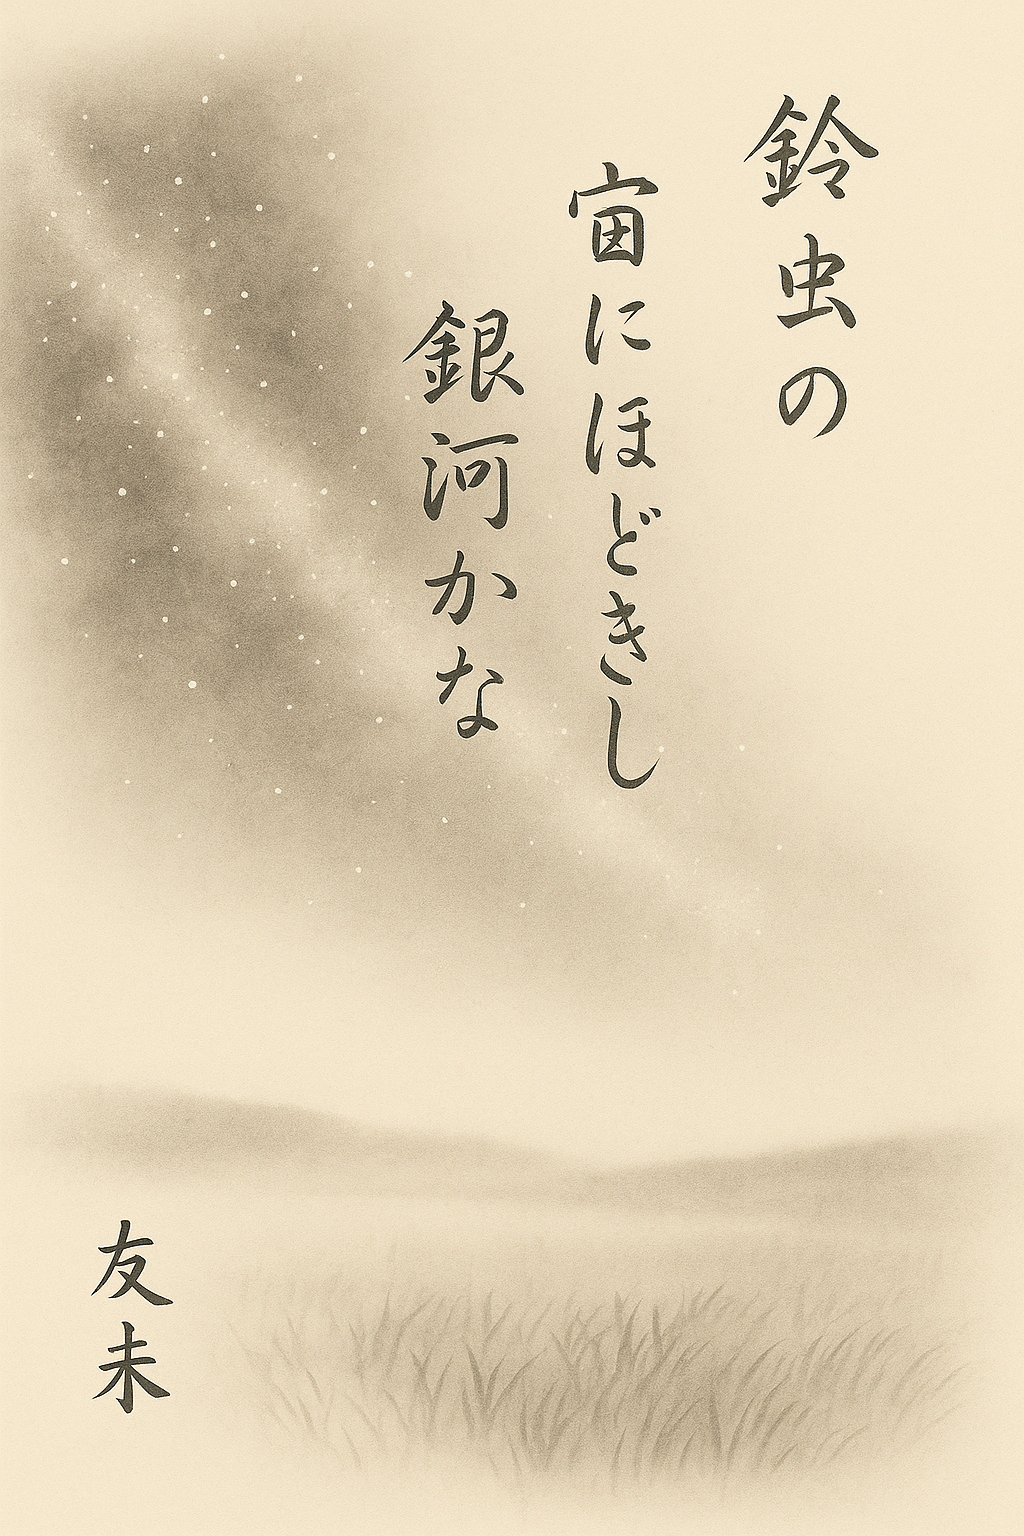 鈴虫の
にほどきし
銀河かな
友未